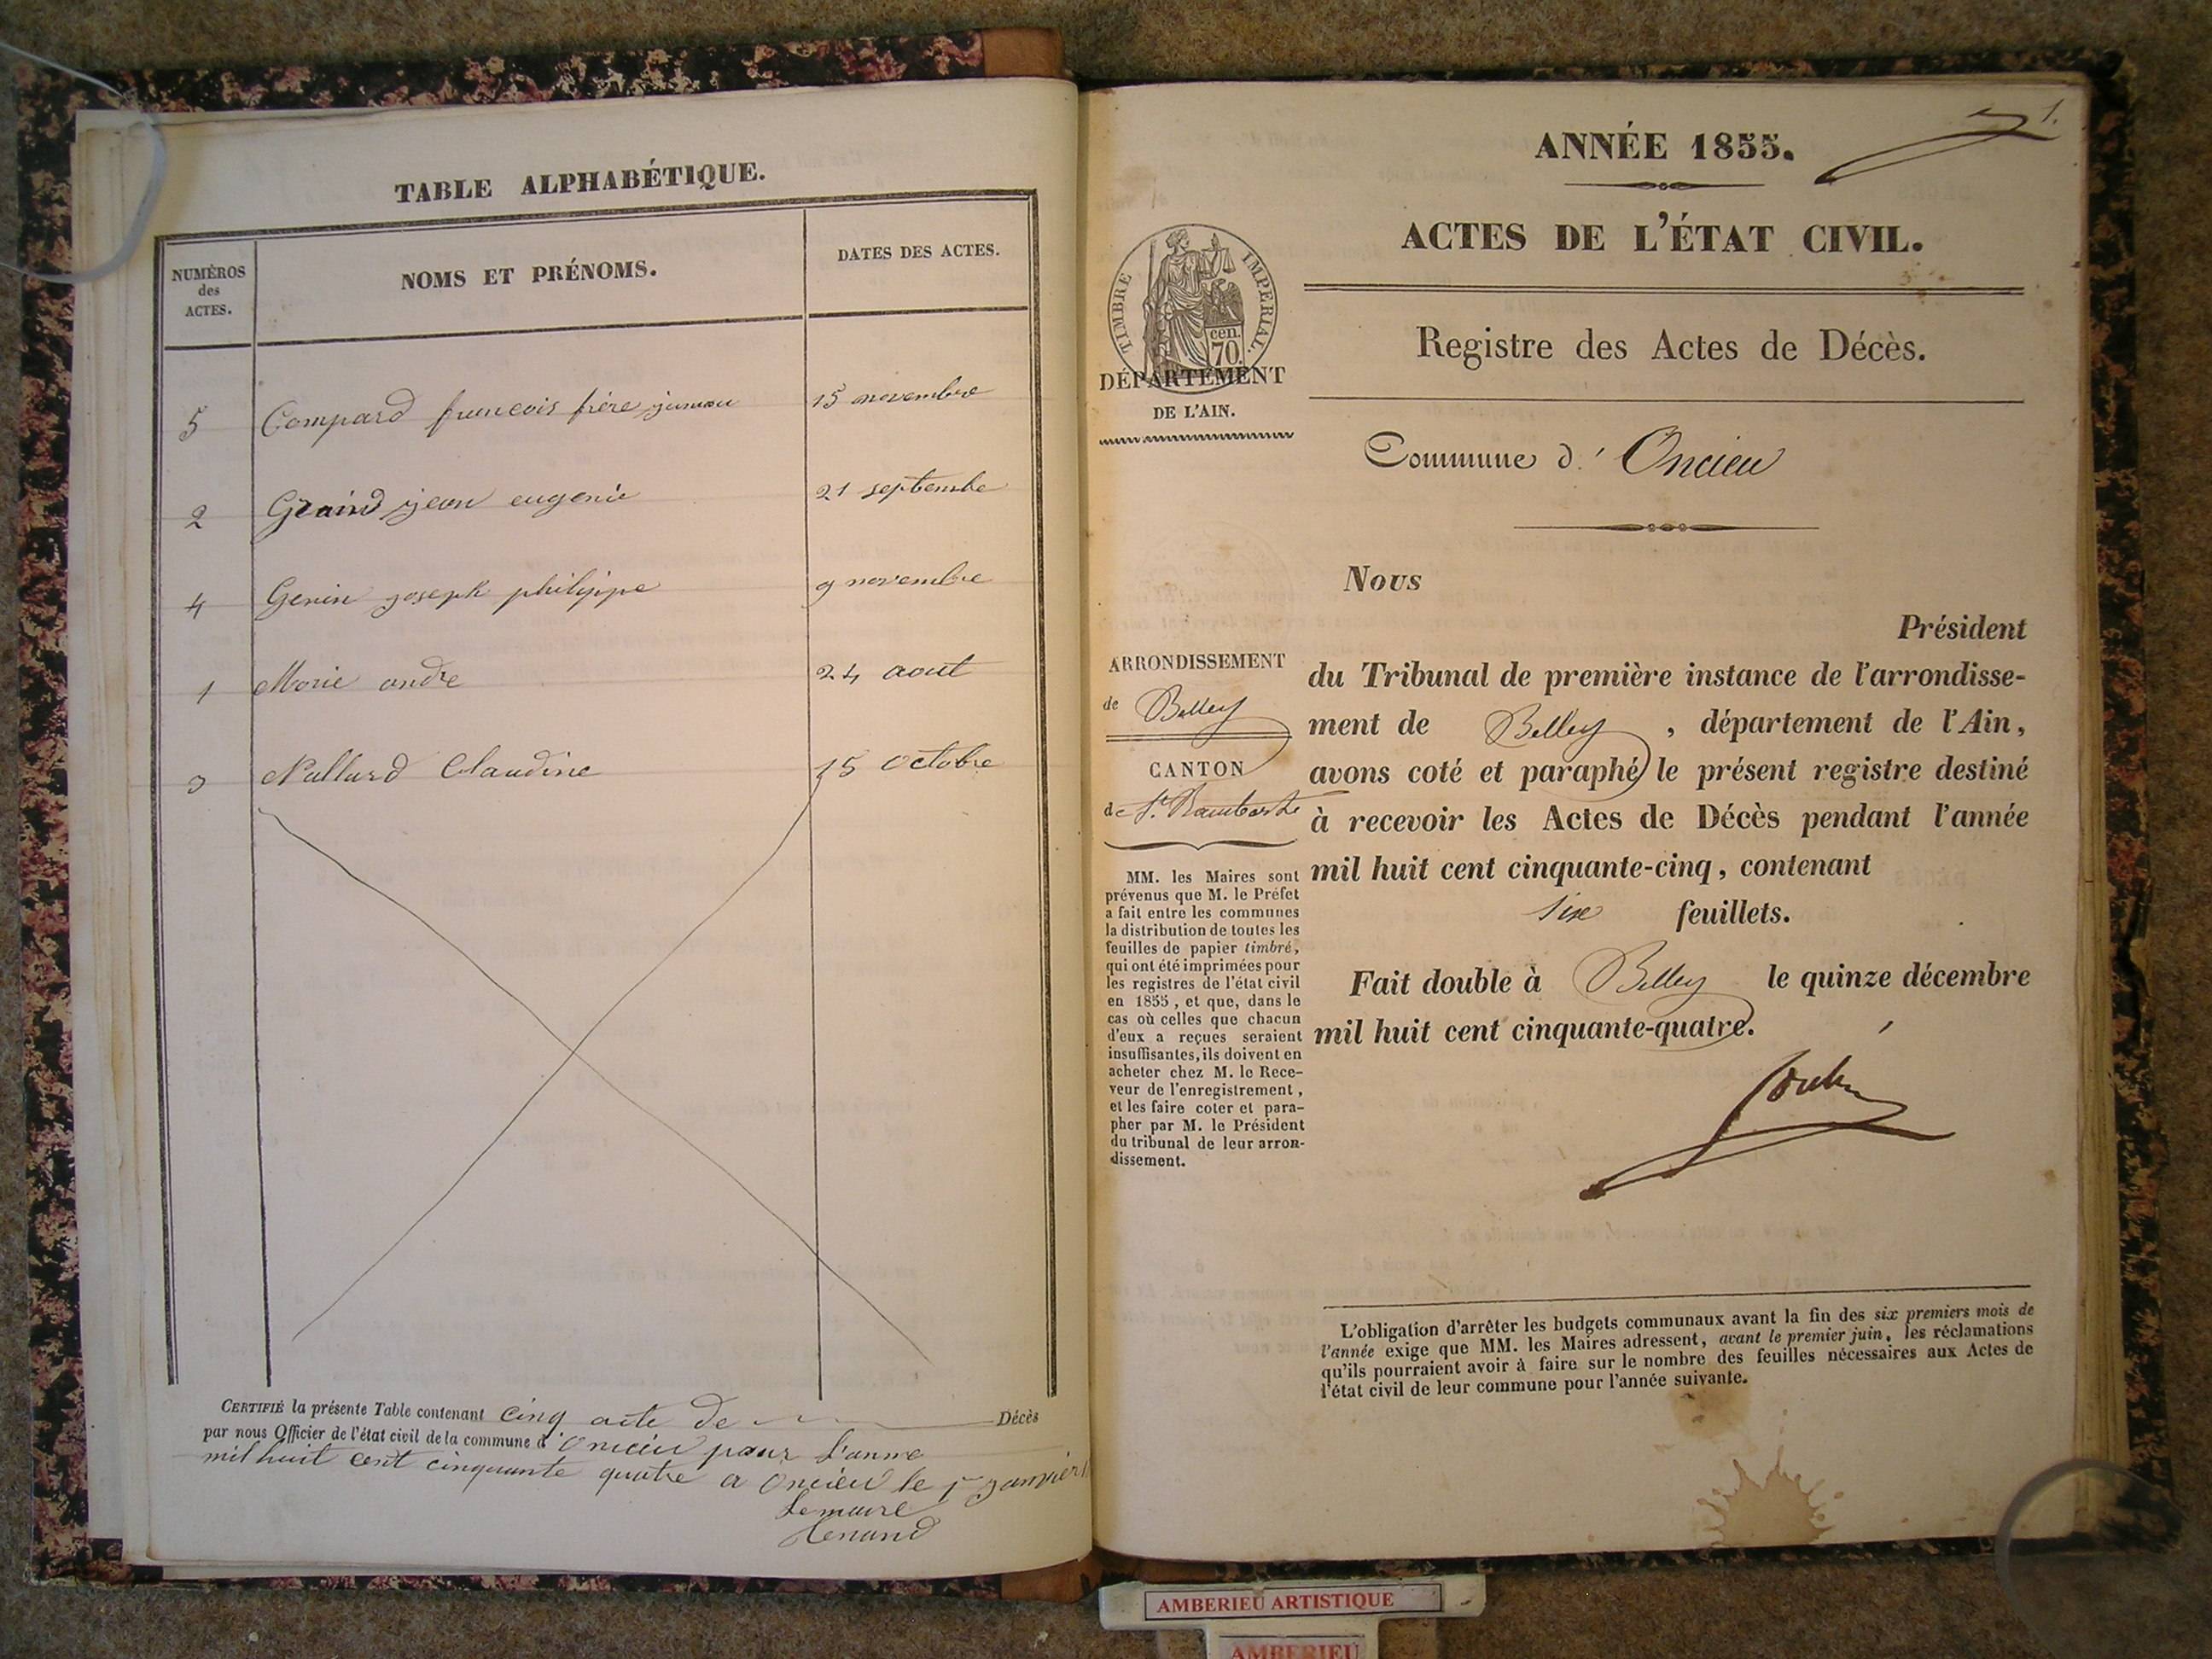 TABLE ALPHABÉTIQUE.
NUMÉROS
des
ACTES.
NOMS ET PRÉNOMS.
DATES DES ACTES.
5 Compard francois frère jumau 15 novembre
2 Graind jean eugenie 21 septembe
4 Genin joseph philippe 9 novembre
1 Morie andre 24 aout
3 Nallard Claudine 15 octobre
CERTIFIÉ la présente Table contenant cinq acte de Décès
par nous Officier de l'état civil de la commune d' Oncieu pour l'anne
mil huit cent cinquante quatre a Oncieu le 1er janvier
Le maire
1.
ANNÉE 1855.
ACTES DE L'ÉTAT CIVIL.
TIMBRE IMPÉRIAL.
cen.
70.
DÉPARTEMENT
DE L'AIN.
Registre des Actes de Décès.
Commune d' Oncieu
Nous
Président
ARRONDISSEMENT
de Belley
CANTON
de St. Rambert
du Tribunal de première instance de l'arrondisse-
ment de Belley, département de l'Ain,
avons coté et paraphé le présent registre destiné
à recevoir les Actes de Décès pendant l'année
mil huit cent cinquante-cinq, contenant
six feuillets.
Fait double à Belley le quinze décembre
mil huit cent cinquante-quatre.
MM. les Maires sont
prévenus que M. le Préfet
a fait entre les communes
la distribution de toutes les
feuilles de papier timbré,
qui ont été imprimées pour
les registres de l'état civil
en 1855, et que, dans le
cas où celles que chacun
d'eux a reçues seraient
insuffisantes, ils doivent en
acheter chez M. le Rece-
veur de l'enregistrement,
et les faire coter et para-
pher par M. le Président
du tribunal de leur arron-
dissement.
L'obligation d'arrêter les budgets communaux avant la fin des six premiers mois de
l'année exige que MM. les Maires adressent, avant le premier juin, les réclamations
qu'ils pourraient avoir à faire sur le nombre des feuilles nécessaires aux Actes de
l'état civil de leur commune pour l'année suivante.
AMBERIEU ARTISTIQUE
AMBERIEU